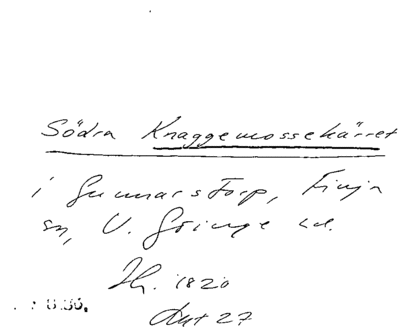 Södra Knaggemossekärret
i Gunnarstorp, Finja
sn, V. Göinge hd.
Jh. 1820
Akt 27